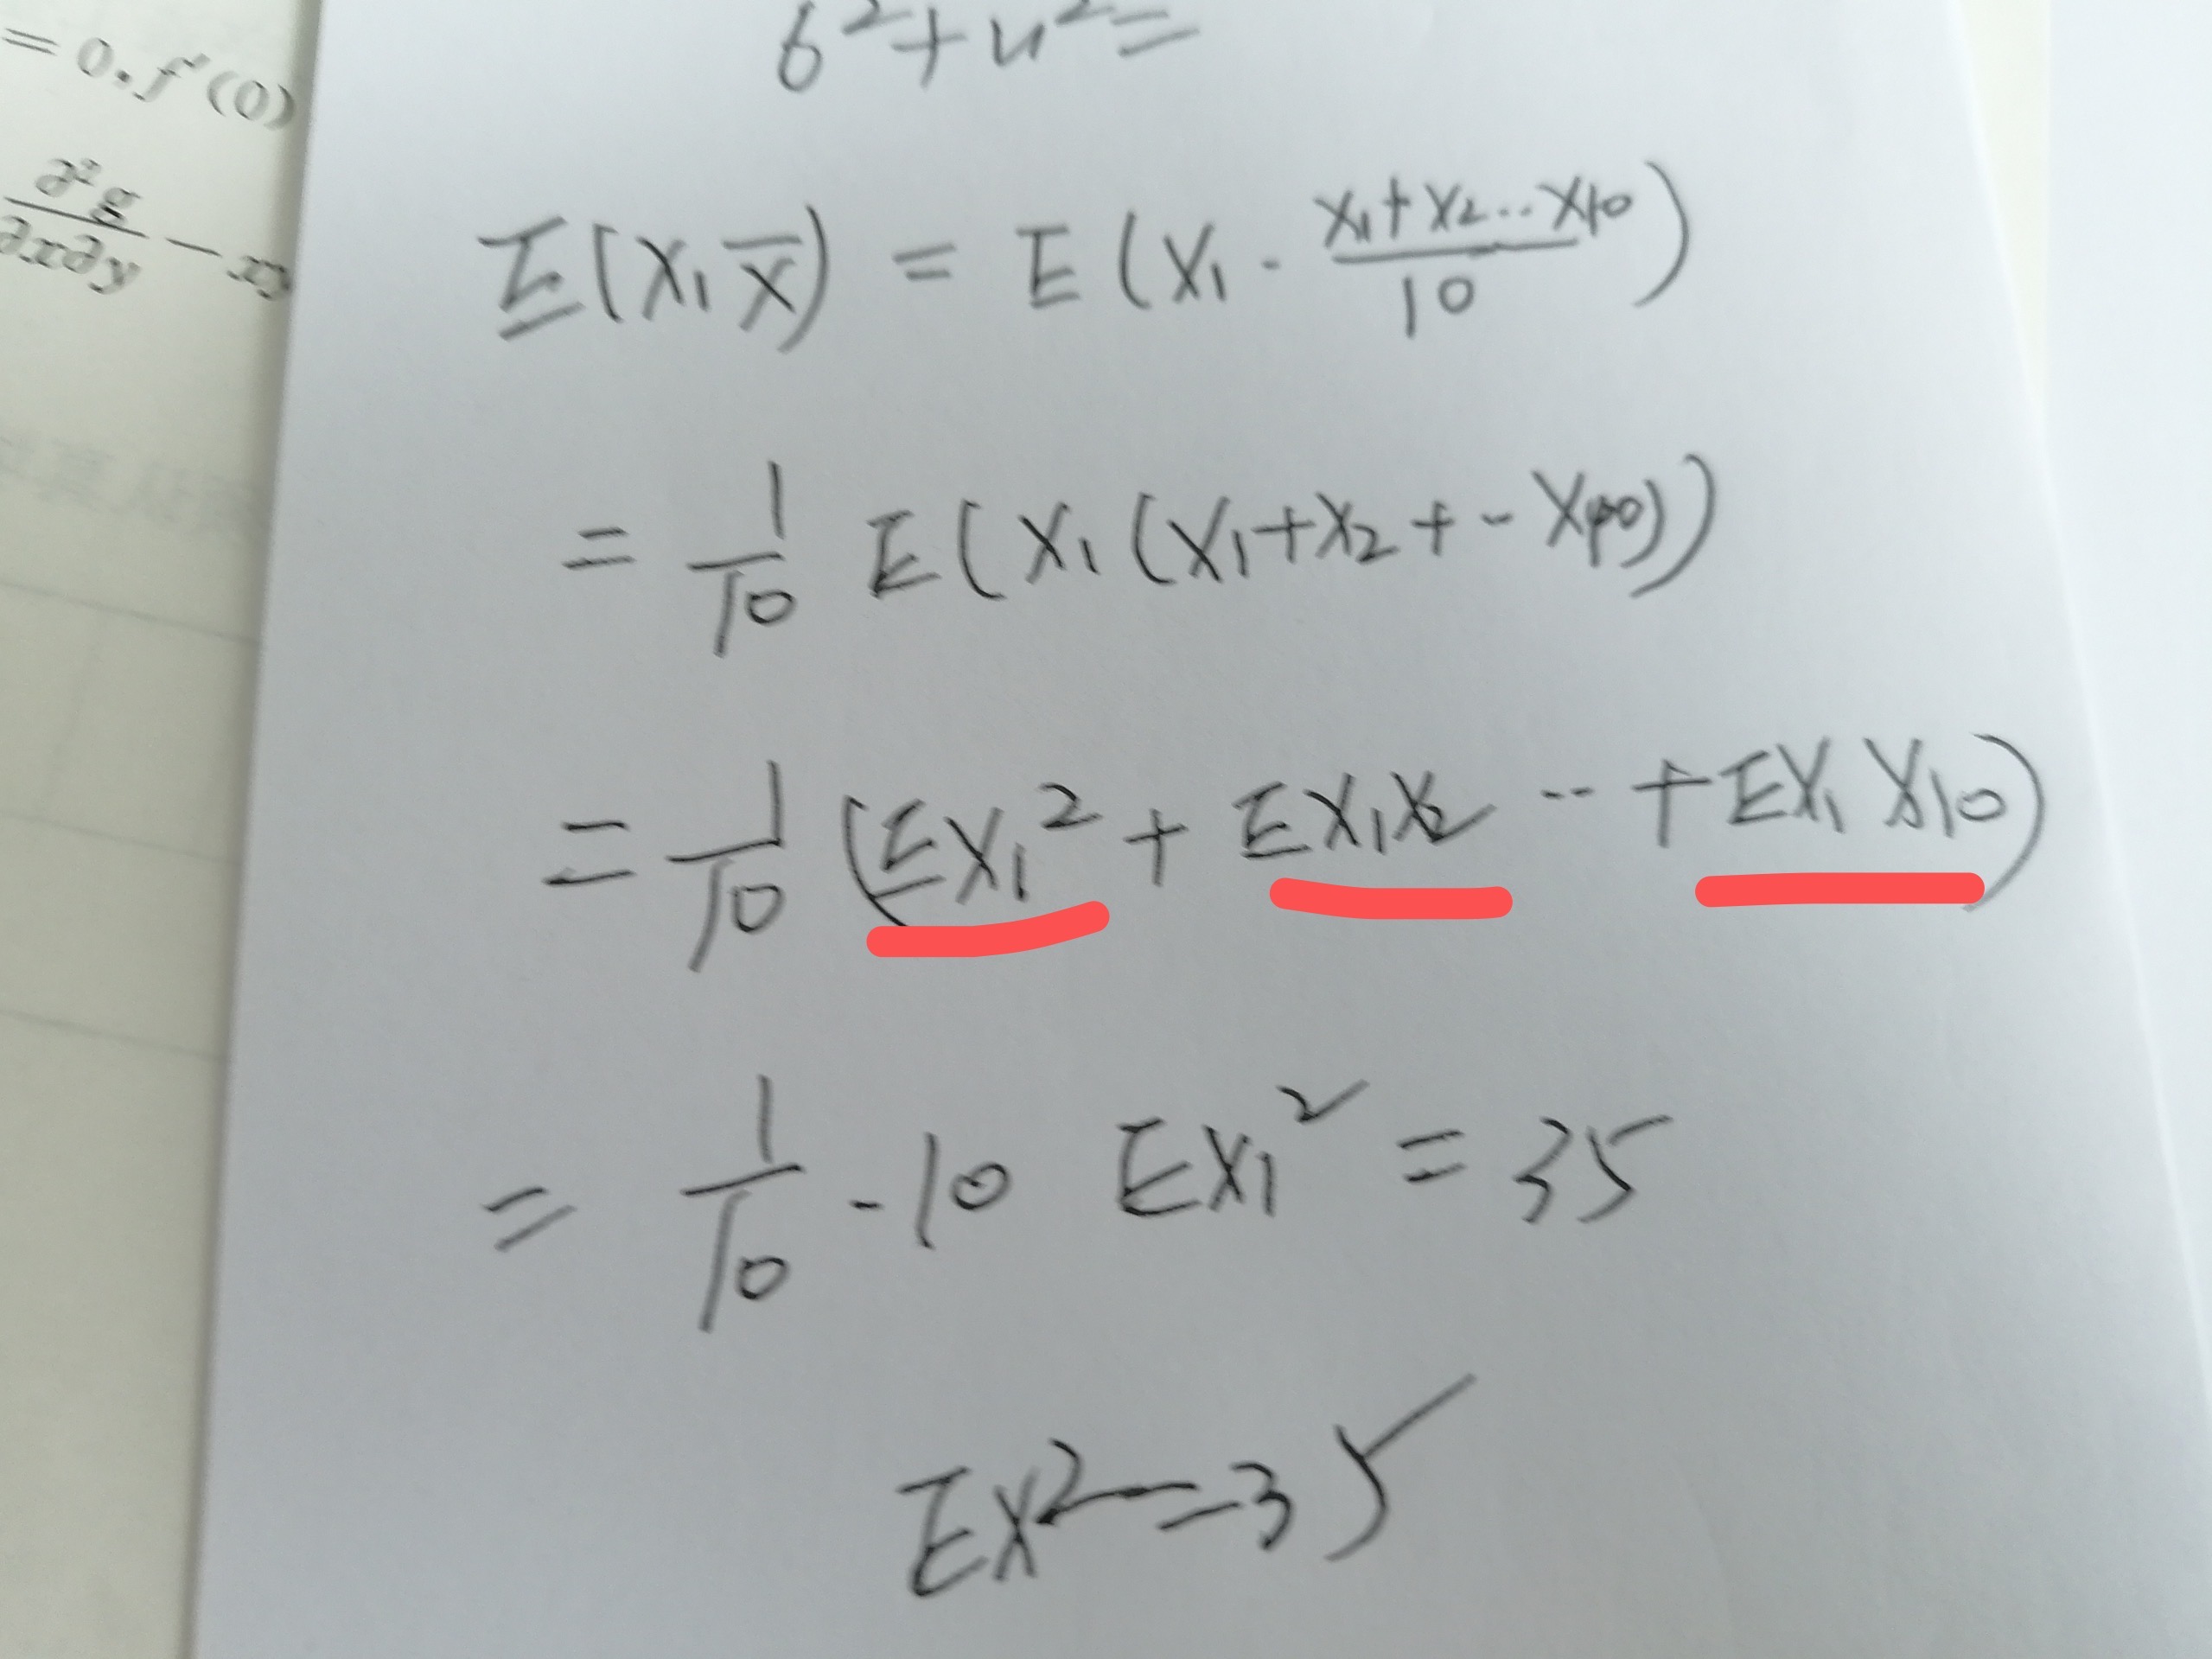 = 0. f'(0)
∂²g/∂x∂y - xy
6² + u² =
E(X₁X̄) = E(X₁ · (X₁+X₂...X10)/10)
= 1/10 E(X₁(X₁+X₂+-X10))
= 1/10 (EX₁² + EX₁X₂ ·· +EX₁X10)
= 1/10 · 10 EX₁² = 35
EX² = 35